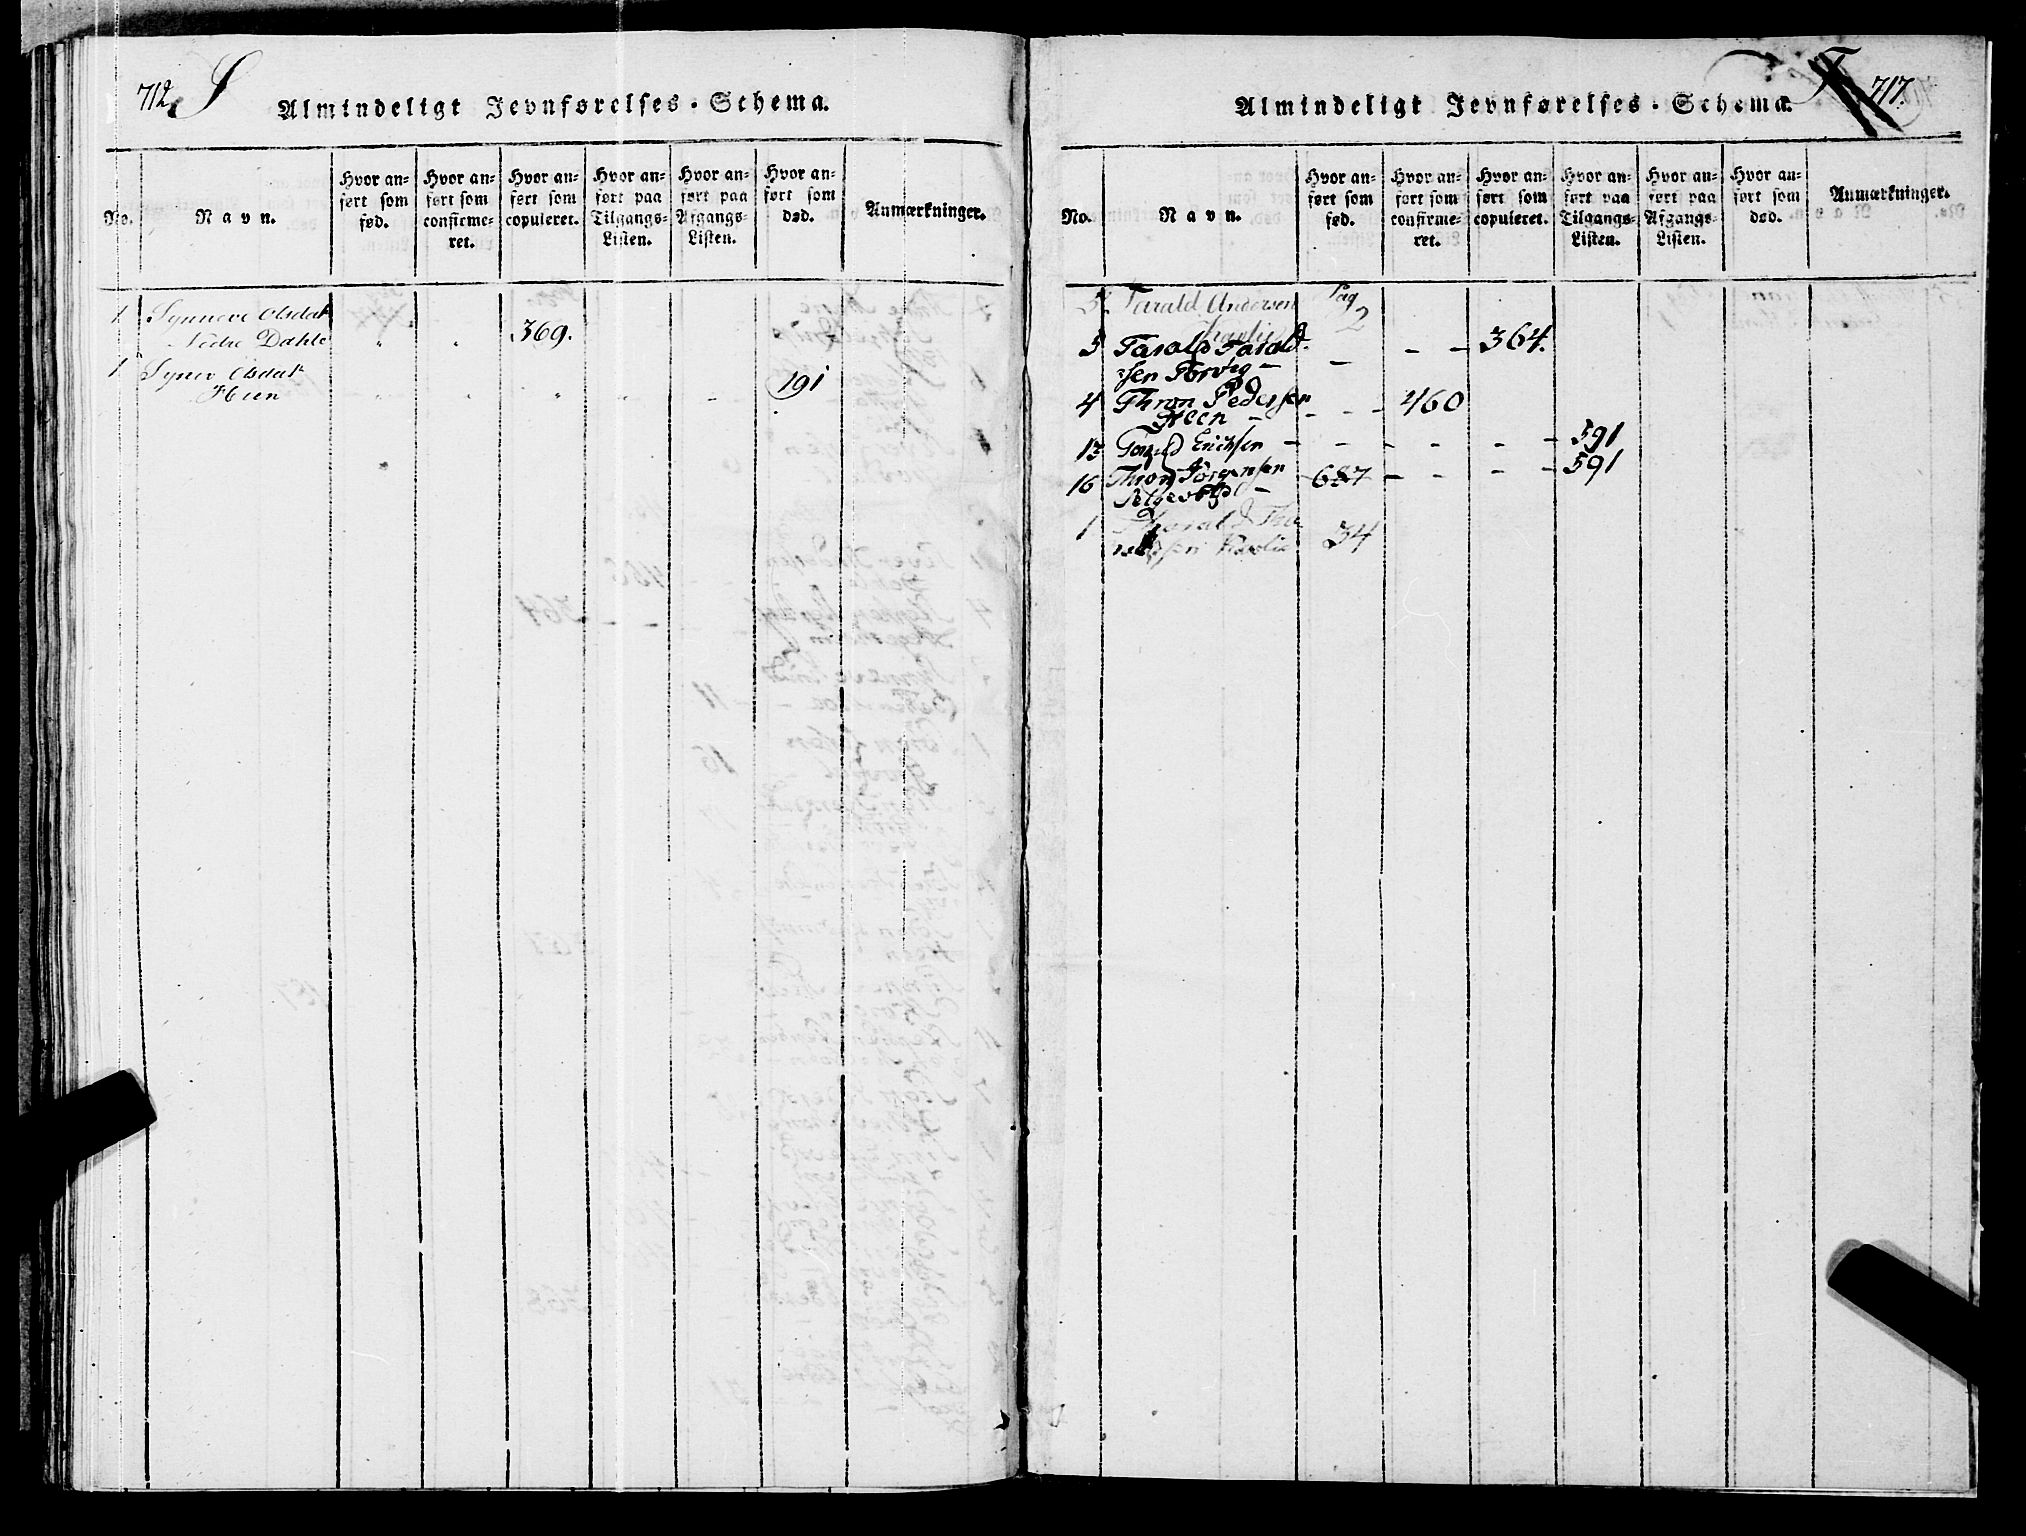 712. S
Almindeligt Jevnførelses-Schema.
No.
Navn.
Hvor an=
ført som
fød.
Hvor an=
ført som
confirme=
ret.
Hvor an=
ført som
copuleret.
Hvor an=
ført paa
Tilgangs=
Listen.
Hvor an=
ført paa
Afgangs=
Listen.
Hvor an=
ført som
død.
Anmærkninger.
1 Synneve Olsdat
Nedre Dahle " " 369.
1 Synev Olsdat
Hien " " " " - 191
T 717.
Almindeligt Jevnførelses-Schema.
No.
Navn.
Hvor an=
ført som
fød.
Hvor an=
ført som
confirme=
ret.
Hvor an=
ført som
copuleret.
Hvor an=
ført paa
Tilgangs=
Listen.
Hvor an=
ført paa
Afgangs=
Listen.
Hvor an=
ført som
død.
Anmærkninger.
5. Tarald Andersen Pag
2
5 Tarald Tarald- - - - 364.
sen Torvig -
4 Thron Pedersen
Heen - - - - 460
13 Erichsen - - - - - - 591
16 Thron Jørgensen 687 - - - - 591
1 Tharald Tha
34